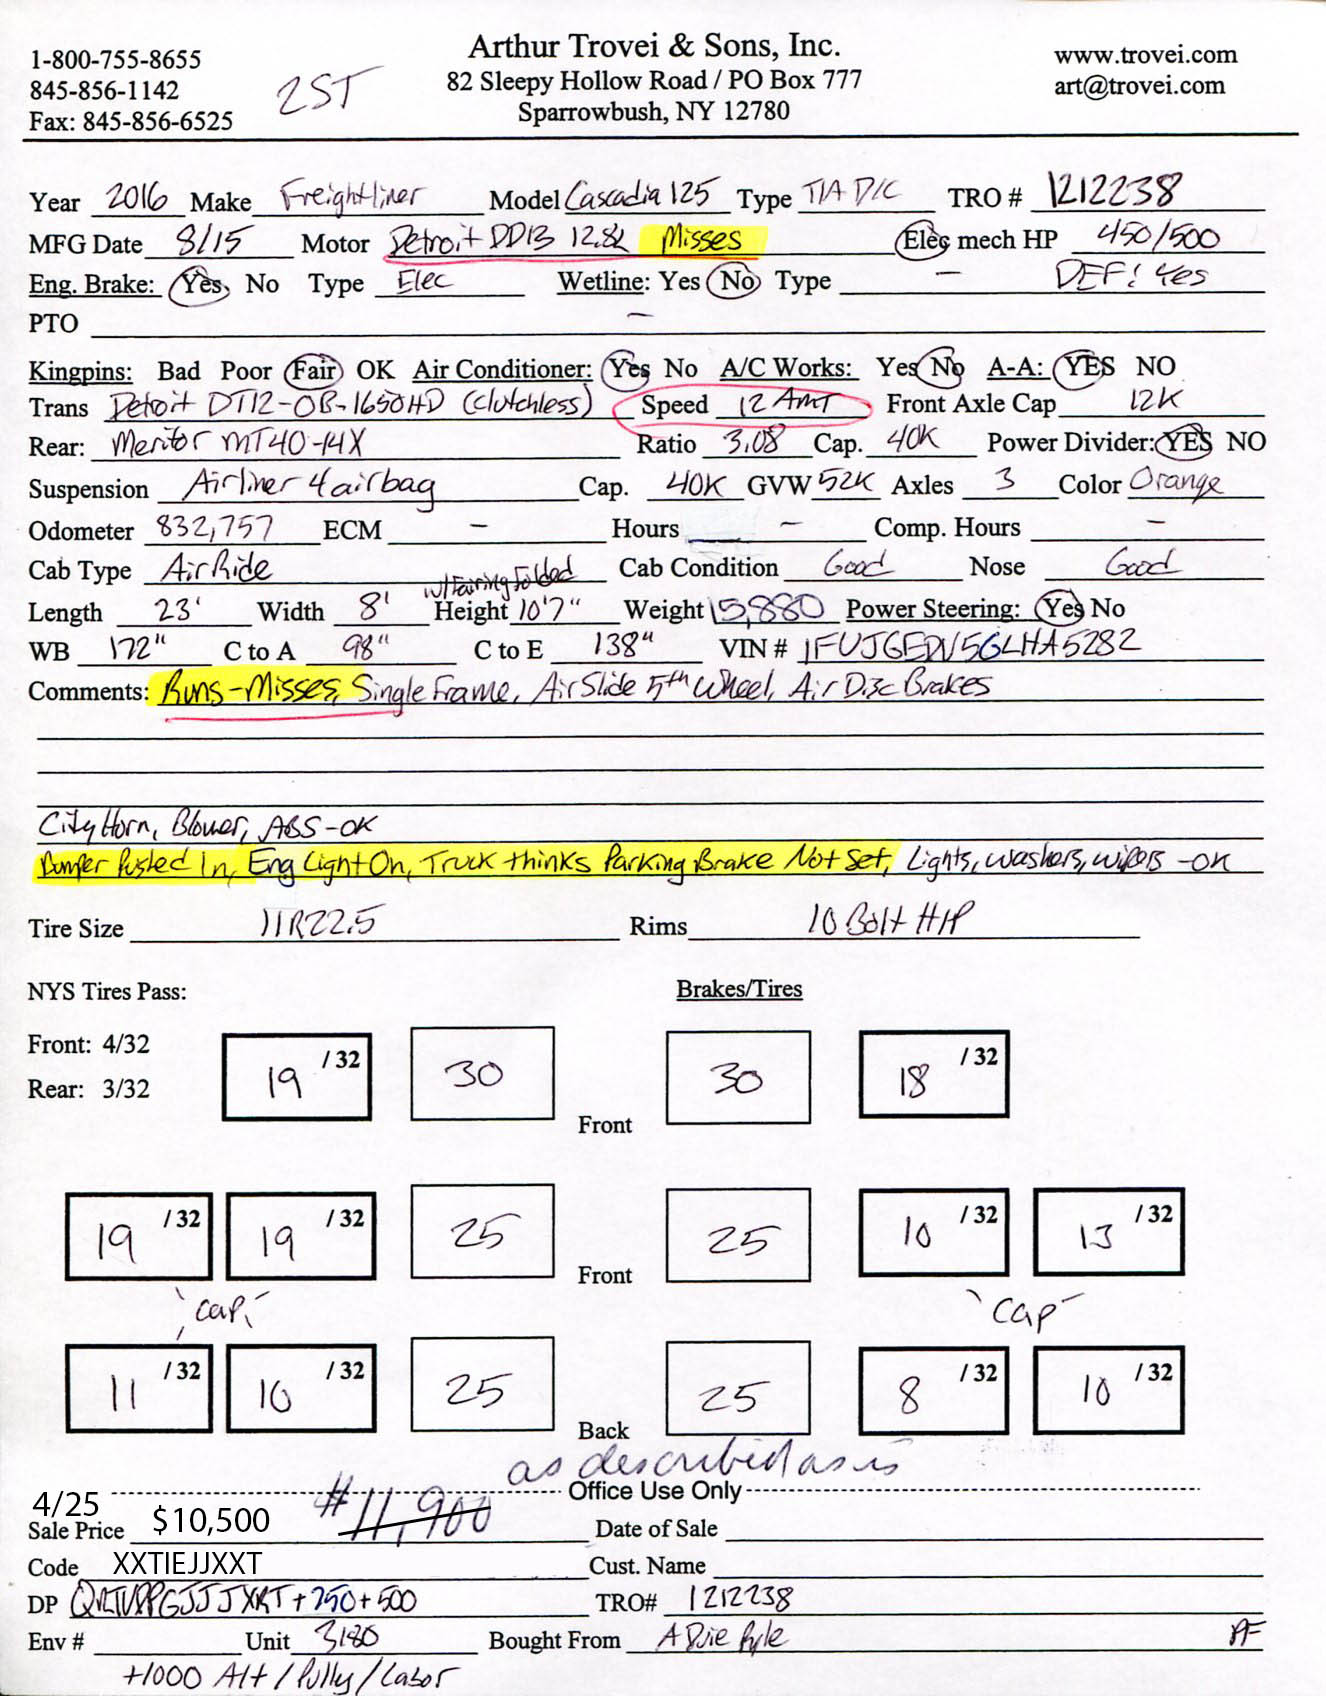 1-800-755-8655
845-856-1142
Fax: 845-856-6525
2ST
Arthur Trovei & Sons, Inc.
82 Sleepy Hollow Road / PO Box 777
Sparrowbush, NY 12780
www.trovei.com
art@trovei.com
Year 2016 Make Freightliner Model Cascadia 125 Type T/A D/C TRO # 1212238
MFG Date 8/15 Motor Detroit DD13 12.8L Misses Elec mech HP 450/500
Eng. Brake: Yes No Type Elec Wetline: Yes No Type - DEF: Yes
PTO -
Kingpins: Bad Poor Fair OK Air Conditioner: Yes No A/C Works: Yes No A-A: YES NO
Trans Detroit DT12-OB-1650HD (Clutchless) Speed 12 AMT Front Axle Cap 12K
Rear: Meritor MT40-14X Ratio 3.08 Cap. 40K Power Divider: YES NO
Suspension Airliner 4 airbag Cap. 40K GVW 52K Axles 3 Color Orange
Odometer 832,757 ECM - Hours - Comp. Hours -
Cab Type Air Ride Cab Condition Good Nose Good
w/Fairing Folded
Length 23' Width 8' Height 10'7" Weight 15,880 Power Steering: Yes No
WB 172" C to A 98" C to E 138" VIN # 1FUJGEDV5GLHA5282
Comments: Runs-Misses, Single Frame, Air Slide 5th Wheel, Air Disc Brakes
City Horn, Blower, ABS-OK
Bumper Pushed In, Eng Light On, Truck thinks Parking Brake Not Set, Lights, washers, wipers -OK
Tire Size 11R22.5 Rims 10 Bolt H/P
NYS Tires Pass: Brakes/Tires
Front: 4/32
Rear: 3/32
19 /32 30 Front 30 18 /32
19 /32 19 /32 25 Front 25 10 /32 13 /32
cap cap
11 /32 10 /32 25 Back 25 8 /32 10 /32
as described as is
Office Use Only
4/25
Sale Price $10,500 #11,900 Date of Sale
Code XXTIEJJXXT Cust. Name
DP +750+500 TRO# 1212238
Env # Unit 3180 Bought From A Duie Pyle PF
+1000 Alt/Pully/Labor